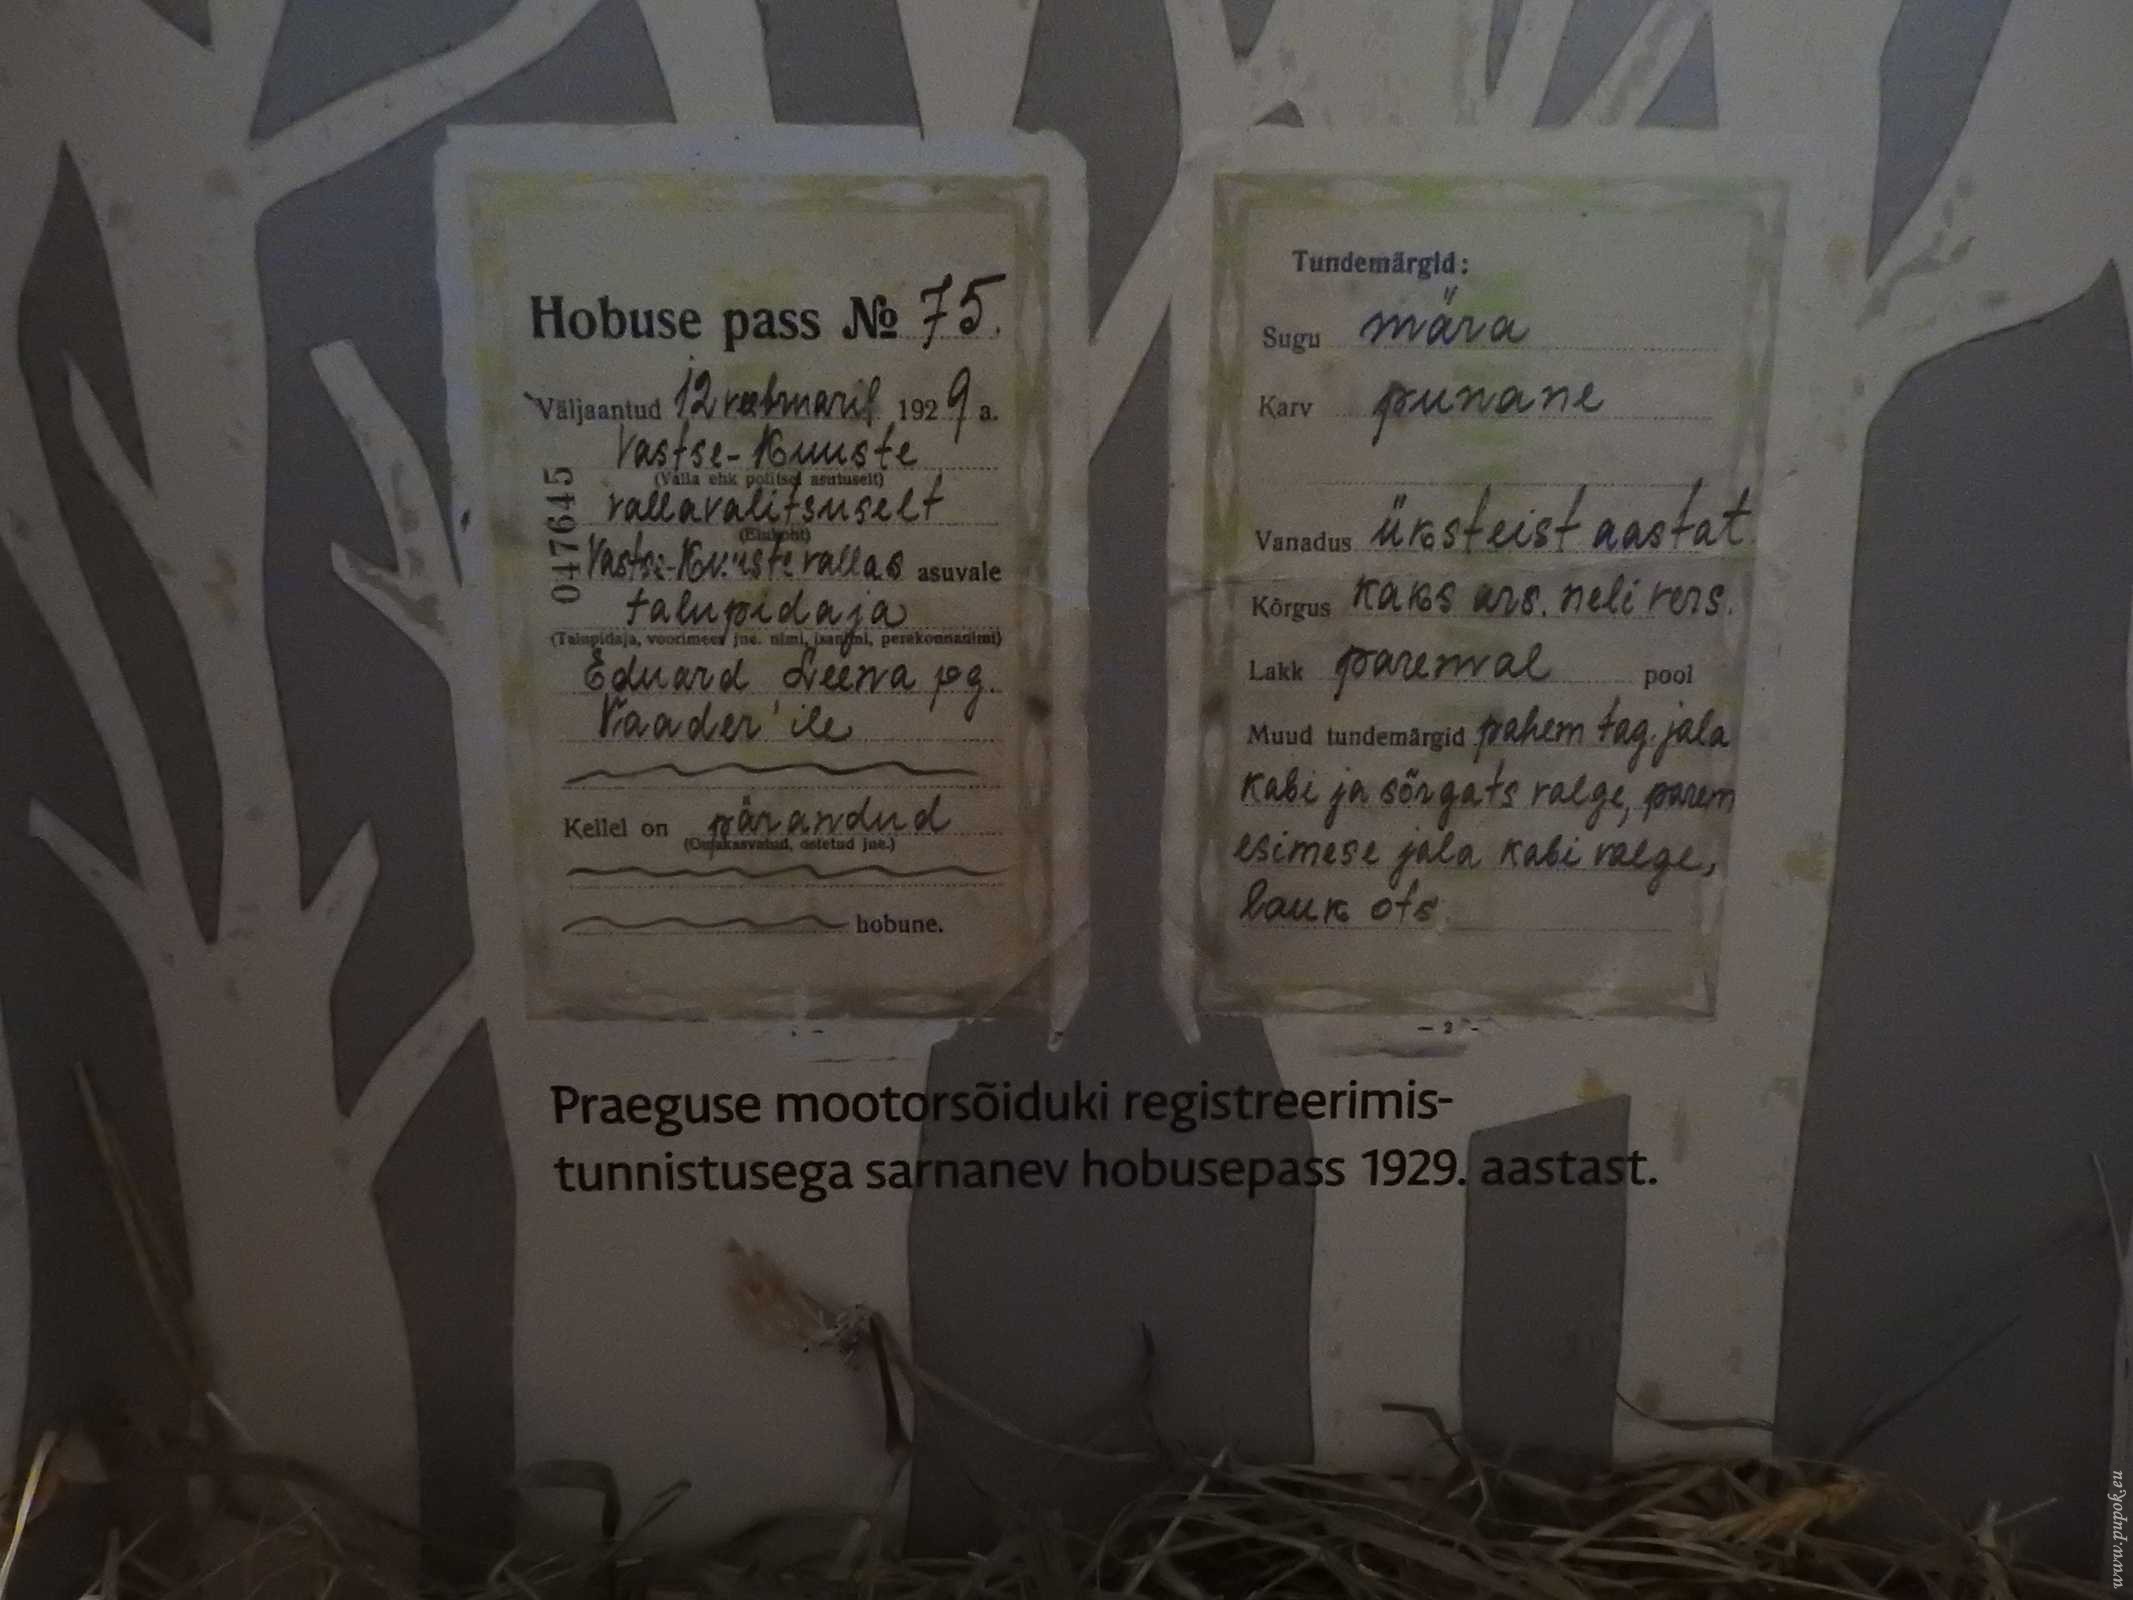 Hobuse pass № 75.
Väljaantud 12 veebruaril 1929 a.
Vastse-Kuuste
(Valla ehk politsei asutuselt)
vallavalitsuselt
(Elukoht)
Vastse-Kuuste vallas asuvale
talupidaja
(Talupidaja, voorimees jne. nimi, isanimi, perekonnanimi)
Eduard Leena pg.
Vaader'ile
Kellel on pärandud
(Omakasvatud, ostetud jne.)
hobune.
047645
Tundemärgid:
Sugu mära
Karv punane
Vanadus üksteist aastat
Kõrgus kaks ars. neli vers.
Lakk paremal pool
Muud tundemärgid pahem tag. jala
kabi ja sõrgats valge, parem
esimese jala kabi valge,
lauk ots
— 2 —
Praeguse mootorsõiduki registreerimis-
tunnistusega sarnanev hobusepass 1929. aastast.
www.pupok.eu